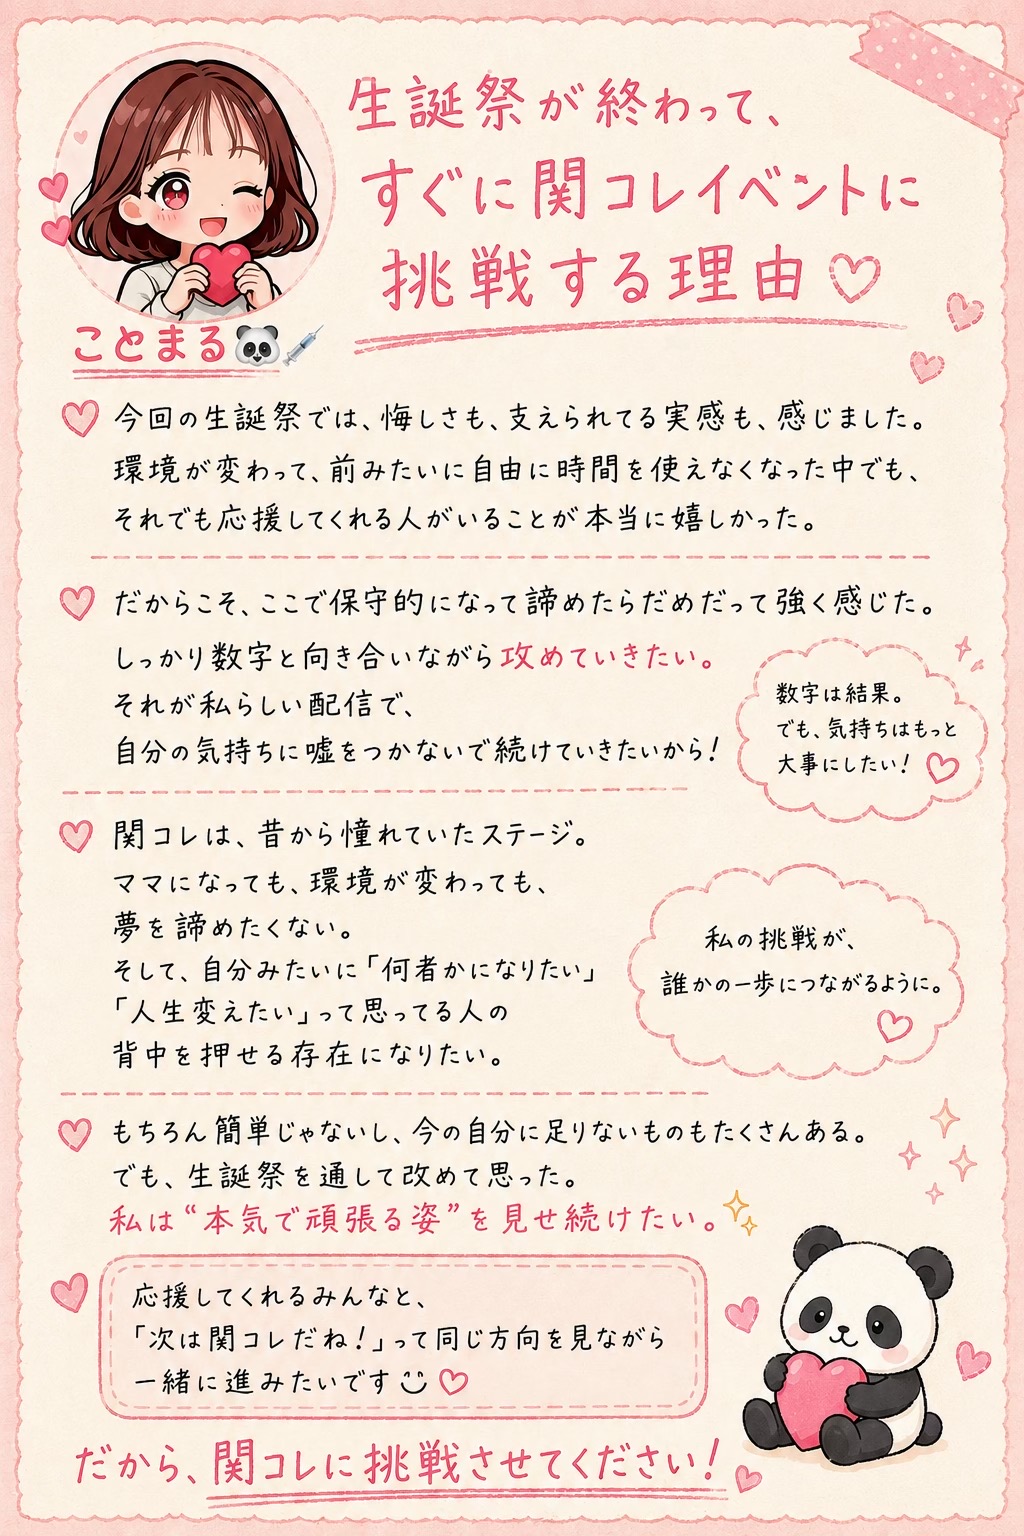 生誕祭が終わって、
すぐに関コレイベントに
挑戦する理由♡
ことまる🐼💉
今回の生誕祭では、悔しさも、支えられてる実感も、感じました。
環境が変わって、前みたいに自由に時間を使えなくなった中でも、
それでも応援してくれる人がいることが本当に嬉しかった。
だからこそ、ここで保守的になって諦めたらだめだって強く感じた。
しっかり数字と向き合いながら攻めていきたい。
それが私らしい配信で、
自分の気持ちに嘘をつかないで続けていきたいから！
数字は結果。
でも、気持ちはもっと
大事にしたい！♡
関コレは、昔から憧れていたステージ。
ママになっても、環境が変わっても、
夢を諦めたくない。
そして、自分みたいに「何者かになりたい」
「人生変えたい」って思ってる人の
背中を押せる存在になりたい。
私の挑戦が、
誰かの一歩につながるように。
♡
もちろん簡単じゃないし、今の自分に足りないものもたくさんある。
でも、生誕祭を通して改めて思った。
私は“本気で頑張る姿”を見せ続けたい。
応援してくれるみんなと、
「次は関コレだね！」って同じ方向を見ながら
一緒に進みたいです☺♡
だから、関コレに挑戦させてください！